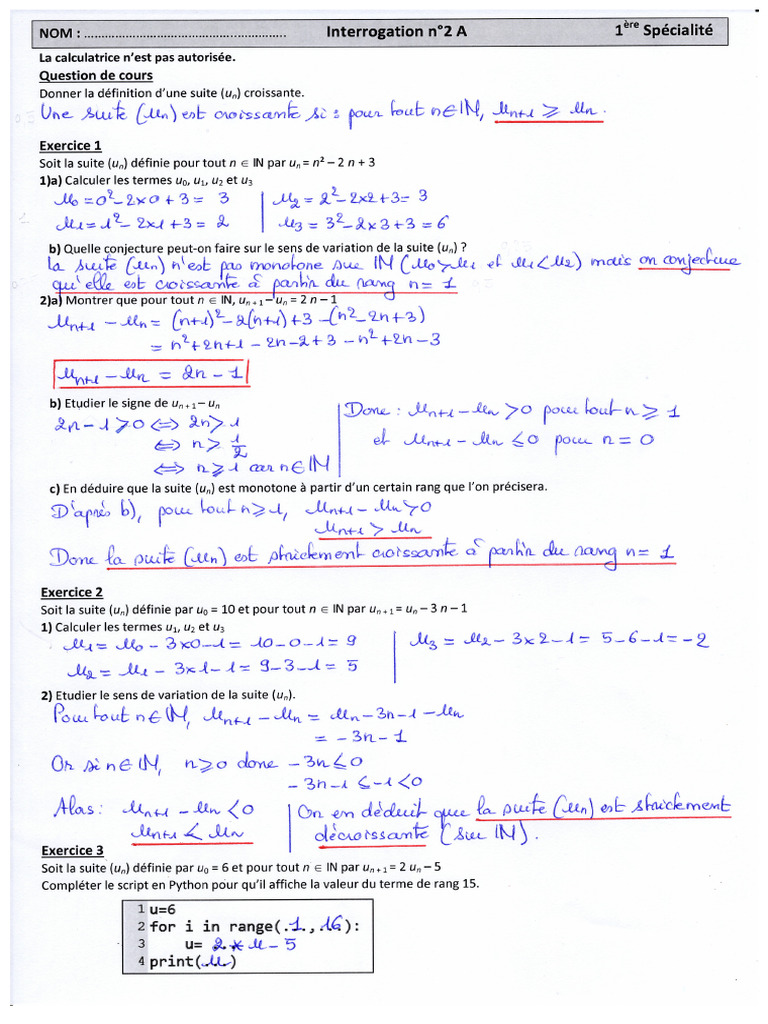 NOM : ............................................................ Interrogation n°2 A 1ère Spécialité
La calculatrice n'est pas autorisée.
Question de cours
Donner la définition d'une suite (un) croissante.
Une suite (un) est croissante si : pour tout n ∈ IN, un+1 ⩾ un.
Exercice 1
Soit la suite (un) définie pour tout n ∈ IN par un = n² – 2 n + 3
1)a) Calculer les termes u0, u1, u2 et u3
u0 = 0² - 2x0 + 3 = 3
u1 = 1² - 2x1 + 3 = 2
u2 = 2² - 2x2 + 3 = 3
u3 = 3² - 2x3 + 3 = 6
b) Quelle conjecture peut-on faire sur le sens de variation de la suite (un) ?
la suite (un) n'est pas monotone sur IN (u0 > u1 et u1 < u2) mais on conjecture
qu'elle est croissante à partir du rang n = 1
2)a) Montrer que pour tout n ∈ IN, un + 1 – un = 2 n – 1
un+1 - un = (n+1)² - 2(n+1) + 3 - (n² - 2n + 3)
= n² + 2n + 1 - 2n - 2 + 3 - n² + 2n - 3
un+1 - un = 2n - 1
b) Etudier le signe de un + 1 – un
2n - 1 > 0 ⟺ 2n > 1
⟺ n > 1/2
⟺ n ⩾ 1 car n ∈ IN
Donc : un+1 - un > 0 pour tout n ⩾ 1
et un+1 - un ⩽ 0 pour n = 0
c) En déduire que la suite (un) est monotone à partir d'un certain rang que l'on précisera.
D'après b), pour tout n ⩾ 1, un+1 - un > 0
un+1 > un
Donc la suite (un) est strictement croissante à partir du rang n = 1
Exercice 2
Soit la suite (un) définie par u0 = 10 et pour tout n ∈ IN par un + 1 = un – 3 n – 1
1) Calculer les termes u1, u2 et u3
u1 = u0 - 3x0 - 1 = 10 - 0 - 1 = 9
u2 = u1 - 3x1 - 1 = 9 - 3 - 1 = 5
u3 = u2 - 3x2 - 1 = 5 - 6 - 1 = -2
2) Etudier le sens de variation de la suite (un).
Pour tout n ∈ IN, un+1 - un = un - 3n - 1 - un
= -3n - 1
Or si n ∈ IN, n ⩾ 0 donc -3n ⩽ 0
-3n - 1 ⩽ -1 < 0
Alos : un+1 - un < 0
un+1 < un
On en déduit que la suite (un) est strictement
décroissante (sur IN).
Exercice 3
Soit la suite (un) définie par u0 = 6 et pour tout n ∈ IN par un + 1 = 2 un – 5
Compléter le script en Python pour qu'il affiche la valeur du terme de rang 15.
1 u=6
2 for i in range(.1.,.16.):
3 u= 2*u-5
4 print(.u.)